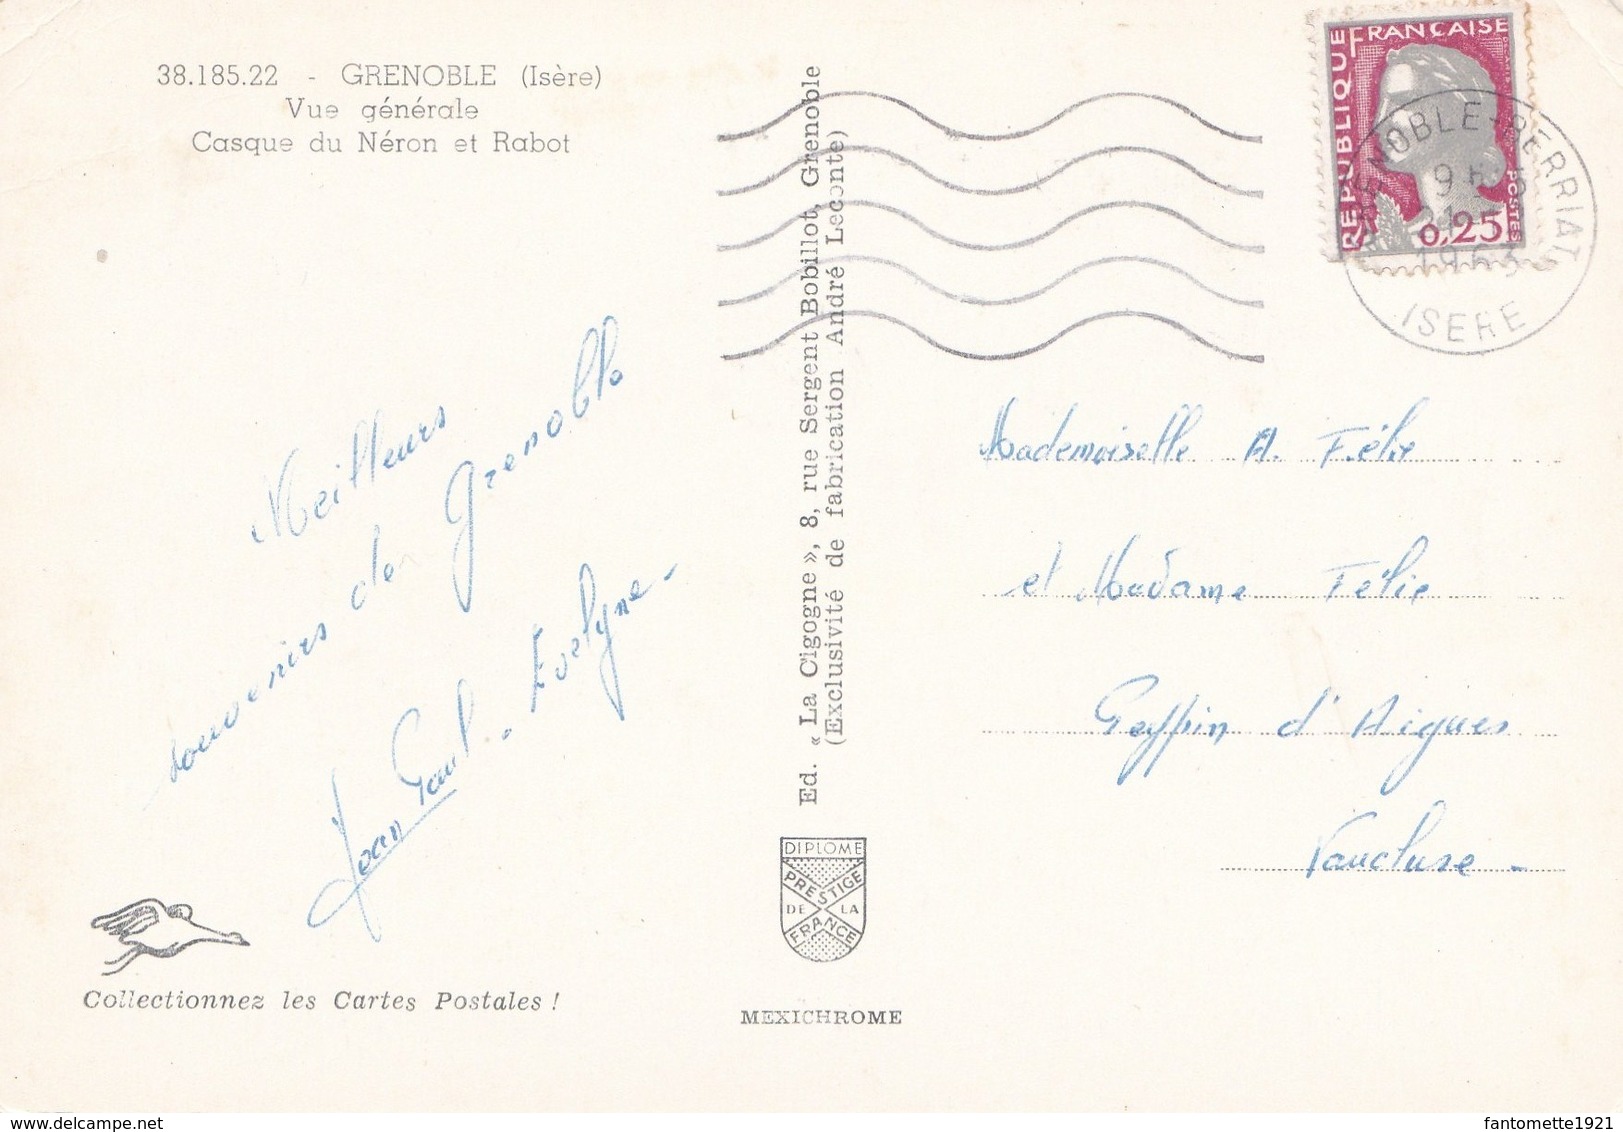 38.185.22 - GRENOBLE (Isère)
Vue générale
Casque du Néron et Rabot
Meilleurs
souvenirs de Grenoble
Jean Paul - Evelyne -
Collectionnez les Cartes Postales !
Ed. « La Cigogne », 8, rue Sergent Bobillot, Grenoble
(Exclusivité de fabrication André Leconte)
DIPLOME
PRESTIGE
DE LA
FRANCE
MEXICHROME
REPUBLIQUE FRANÇAISE
0,25
POSTES
GRENOBLE-BERRIAT
1963
ISERE
Mademoiselle A. Félix
et Madame Félix
Geppin d'Aigues
Vaucluse -
fantomette1921
delcampe.net